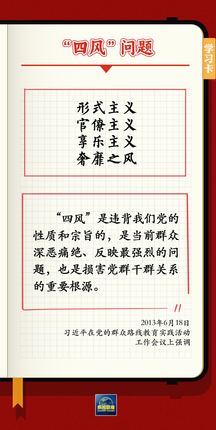 “四风”问题
学习卡
形式主义
官僚主义
享乐主义
奢靡之风
“四风”是违背我们党的
性质和宗旨的，是当前群众
深恶痛绝、反映最强烈的问
题，也是损害党群干群关系
的重要根源。
2013年6月18日
习近平在党的群众路线教育实践活动
工作会议上强调